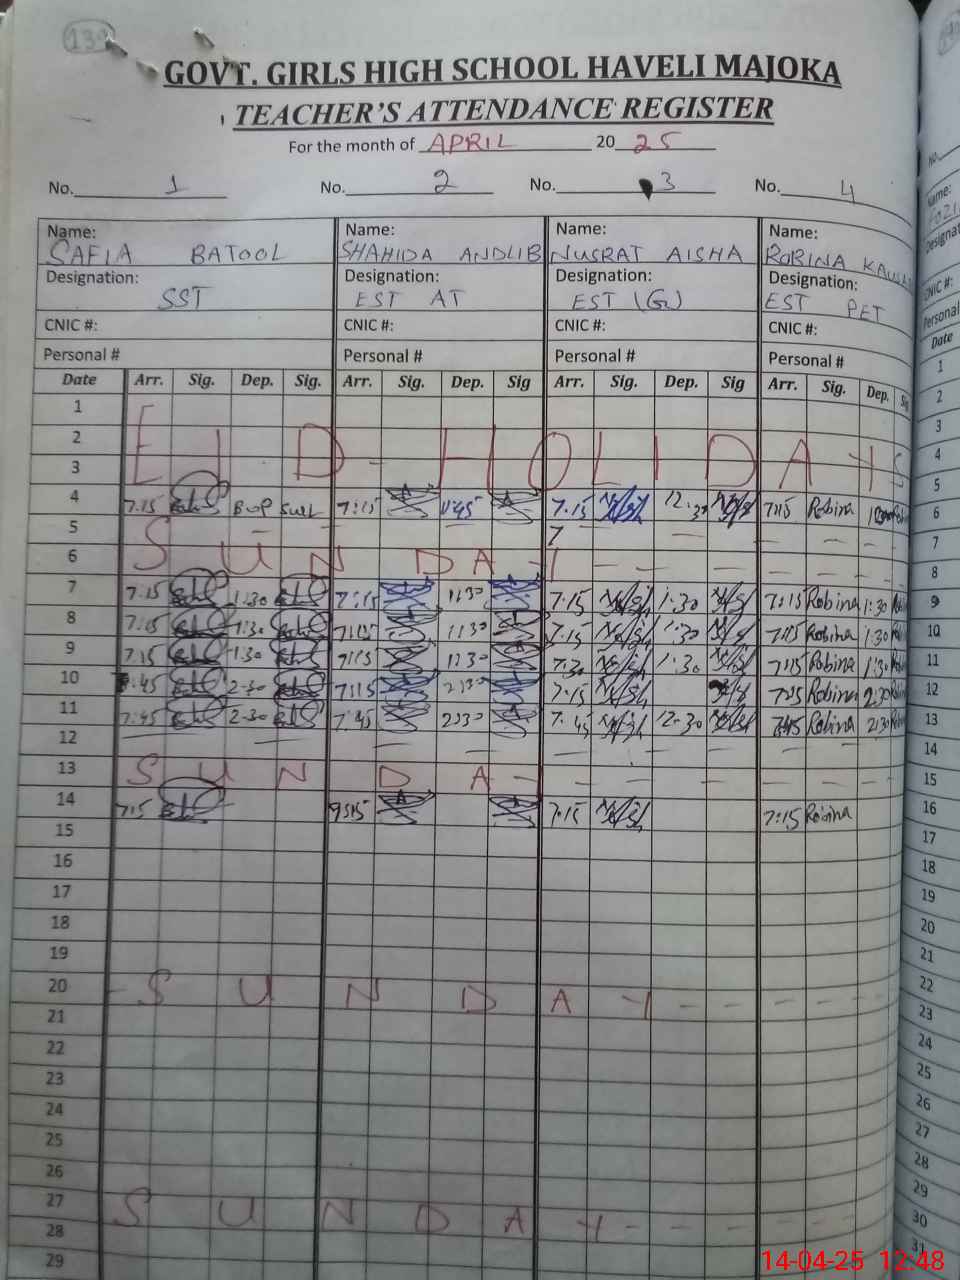 139
GOVT. GIRLS HIGH SCHOOL HAVELI MAJOKA
TEACHER'S ATTENDANCE REGISTER
For the month of APRIL 2025
No. 1 No. 2 No. 3 No. 4
Name: Name: Name: Name:
SAFIA BATOOL SHAHIDA ANDLIB NUSRAT AISHA ROBINA
Designation: Designation: Designation: Designation:
SST EST AT EST (G) EST PET
CNIC #: CNIC #: CNIC #: CNIC #:
Personal # Personal # Personal # Personal #
Date Arr. Sig. Dep. Sig. Arr. Sig. Dep. Sig Arr. Sig. Dep. Sig Arr. Sig. Dep.
1
2 EID - HOLIDAYS
3
4 7.15 7:15 7.15 12:30 7:15 Robina
5
6 SUNDAY - - - - - -
7 7:15 1:30 7:15 1:30 7.15 1:30 7:15 Robina 1:30
8 7:15 1:30 7:15 1:30 7.15 1:30 7:15 Robina 1:30
9 7:15 1:30 7:15 1:30 7:30 1:30 7:15 Robina 1:30
10 :45 2-30 7:15 2:30 7:15 7:15 Robina 2:30
11 7:45 2-30 7:45 2:30 7:45 12-30 7:45 Robina 2:30
12
13 SUNDAY - - - - - -
14 7:15 7.15 7:15 Robina
15
16
17
18
19
20 - SUNDAY - - - - - -
21
22
23
24
25
26
27 SUNDAY - - - - - -
28
29
No.
Name:
CNIC #:
Personal
Date
1
2
3
4
5
6
7
8
9
10
11
12
13
14
15
16
17
18
19
20
21
22
23
24
25
26
27
28
29
30
31
14-04-25 12:48